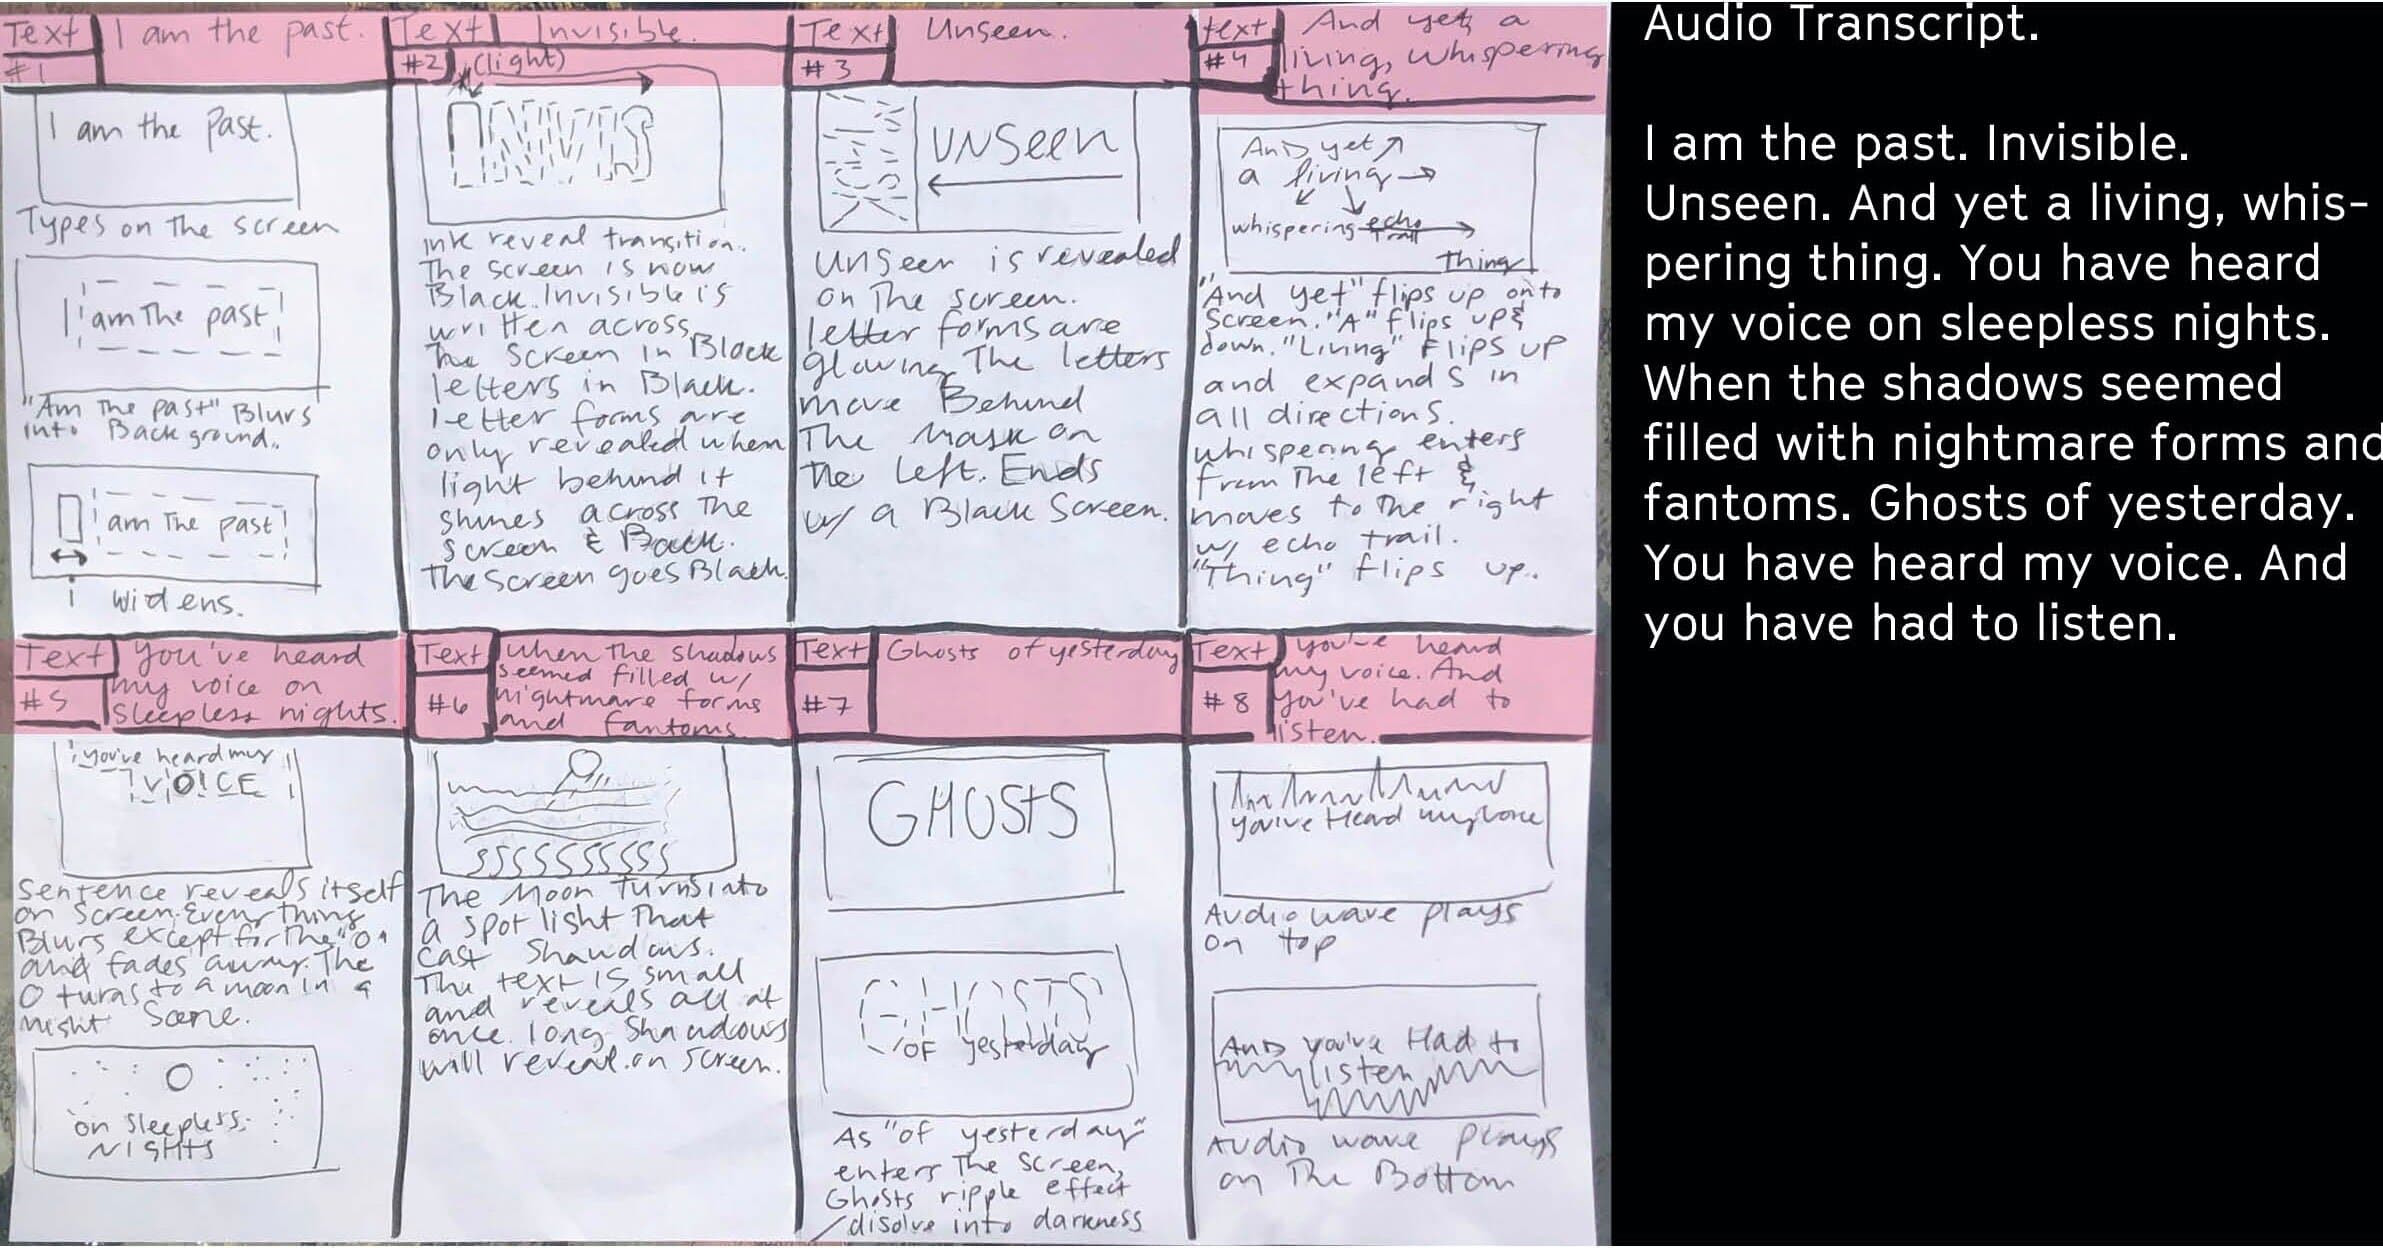 Text
#1
I am the past.
I am the past.
Types on the screen
I am The past
"Am The past" Blurs
into Background.
am The past
i widens.
Text
#2
Invisible.
(light)
INVIS
ink reveal transition.
The screen is now
Black. Invisible is
written across
The screen in Black
letters in Black.
letter forms are
only revealed when
light behind it
shines across The
screen & Back.
The screen goes Black.
Text
#3
Unseen.
UNSeen
Unseen is revealed
on The screen.
letter forms are
glowing The letters
move Behind
The mask on
The left. Ends
w/ a Black Screen.
Text
#4
And yet, a
living, whispering
thing.
And yet
a living
whispering echo
trail
Thing
"And yet" flips up onto
screen. "A" flips up &
down. "Living" Flips up
and expands in
all directions.
whispering enters
from The left &
moves to The right
w/ echo trail.
"Thing" flips up.
Text
#5
You've heard
my voice on
sleepless nights.
you've heard my
VOICE
Sentence reveals itself
on screen. Everything
Blurs except for The "O"
and fades away. The
O turns to a moon in a
night Scene.
on sleepless
NIGHTS
Text
#6
when the shadows
seemed filled w/
nightmare forms
and fantoms.
SSSSSSSSSS
The Moon Turns into
a spot light That
cast Shaudows.
The text is small
and reveals all at
once. long Shaudows
will reveal on screen.
Text
#7
Ghosts of yesterday
GHOSTS
GHOSTS
OF yesterday
As "of yesterday"
enters The screen,
Ghosts ripple effect
/disolve into darkness
Text
#8
you've heard
my voice. And
you've had to
listen.
you've Heard my voice
Audio wave plays
on top
And you've Had to
listen
Audio wave plays
on The Bottom
Audio Transcript.
I am the past. Invisible.
Unseen. And yet a living, whis-
pering thing. You have heard
my voice on sleepless nights.
When the shadows seemed
filled with nightmare forms and
fantoms. Ghosts of yesterday.
You have heard my voice. And
you have had to listen.